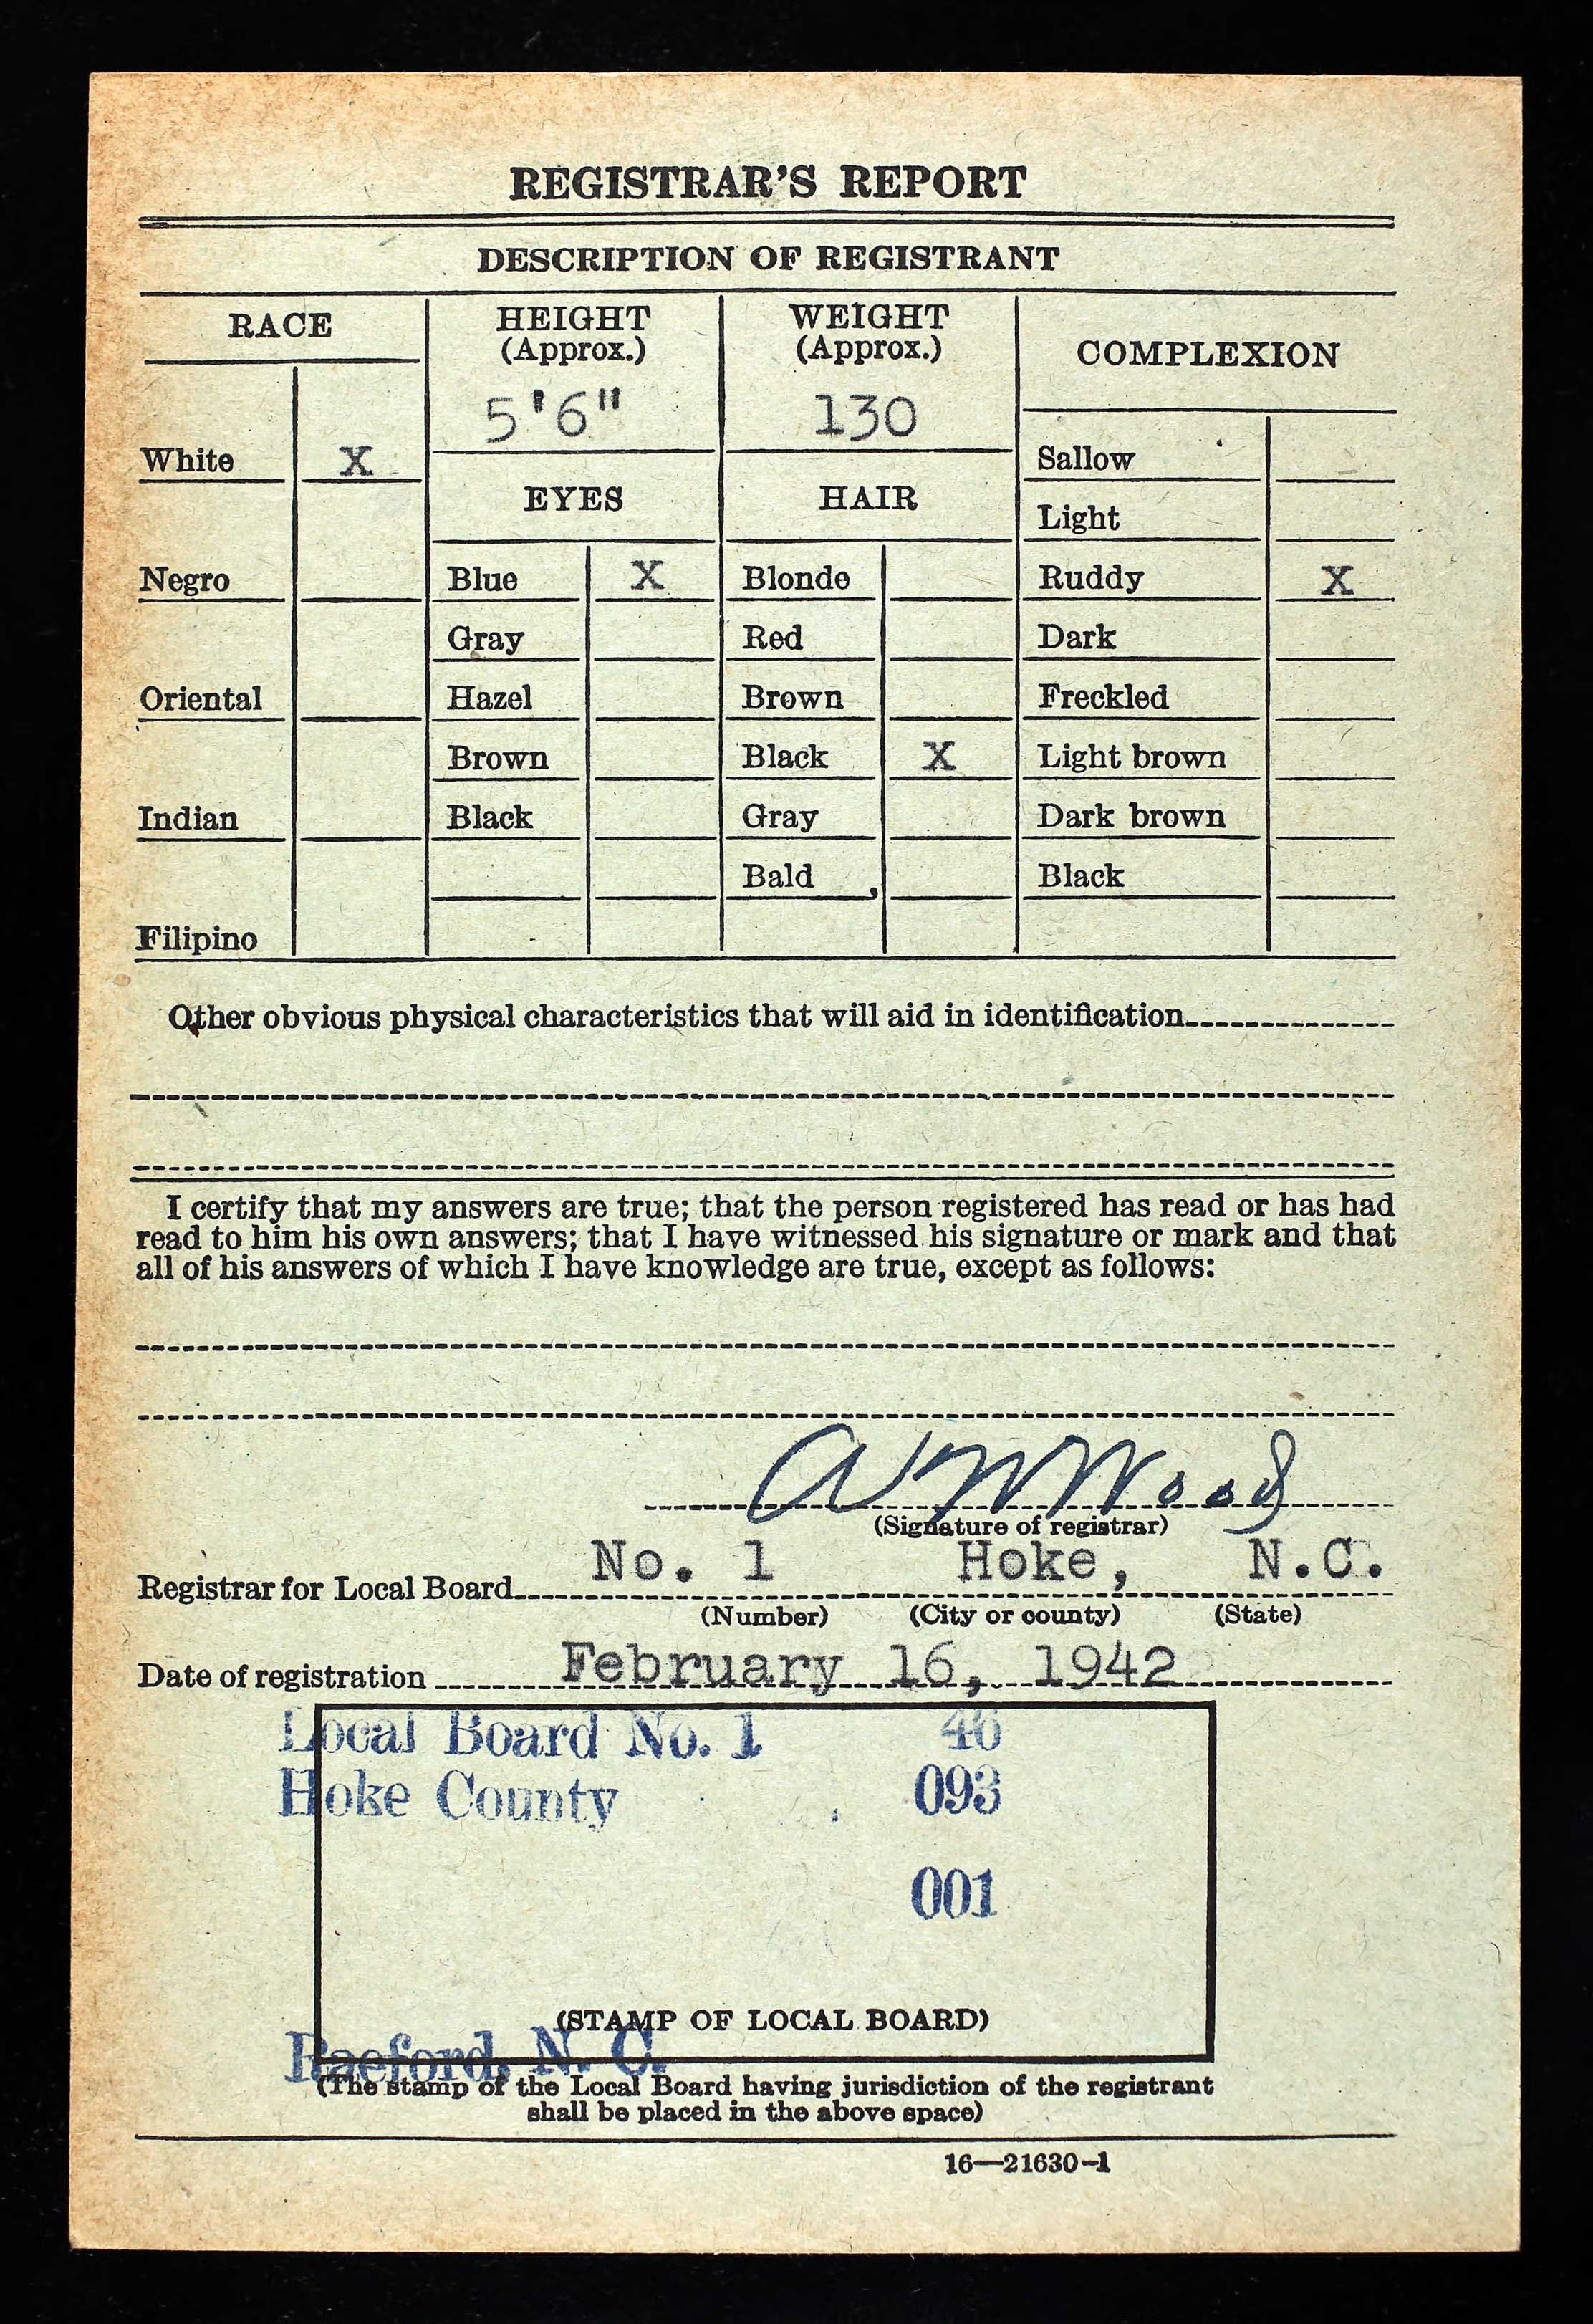 REGISTRAR'S REPORT
DESCRIPTION OF REGISTRANT
RACE HEIGHT (Approx.) WEIGHT (Approx.) COMPLEXION
5'6" 130
White X Sallow
EYES HAIR Light
Negro Blue X Blonde Ruddy X
Gray Red Dark
Oriental Hazel Brown Freckled
Brown Black X Light brown
Indian Black Gray Dark brown
Bald Black
Filipino
Other obvious physical characteristics that will aid in identification
I certify that my answers are true; that the person registered has read or has had
read to him his own answers; that I have witnessed his signature or mark and that
all of his answers of which I have knowledge are true, except as follows:
Wood
(Signature of registrar)
Registrar for Local Board No. 1 Hoke, N.C.
(Number) (City or county) (State)
Date of registration February 16, 1942
Local Board No. 1
Hoke County 093
001
(STAMP OF LOCAL BOARD)
Raeford, N. C.
(The stamp of the Local Board having jurisdiction of the registrant
shall be placed in the above space)
16—21630-1